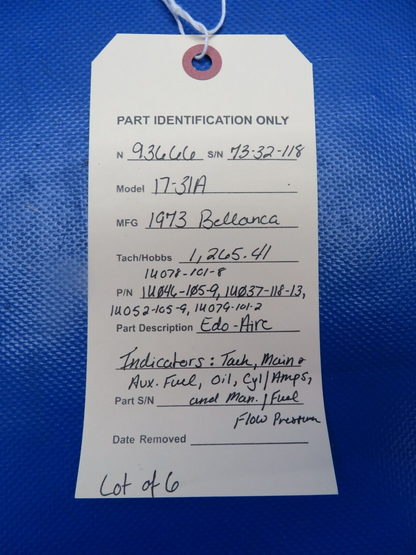 PART IDENTIFICATION ONLY
N 93666 S/N 73-32-118
Model 17-31A
MFG 1973 Bellanca
Tach/Hobbs 1,265.41
1U078-101-8
P/N 1U046-105-9, 1U037-118-13,
1U052-105-9, 1U079-101-2
Part Description Edo-Aire
Indicators: Tach, Main &
Aux. Fuel, Oil, Cyl/Amps,
Part S/N and Man./Fuel
Flow Pressure
Date Removed
Lot of 6